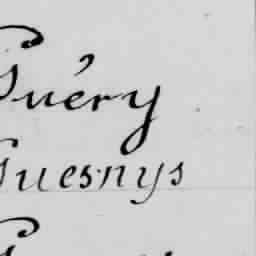 Guéry
Guesnys